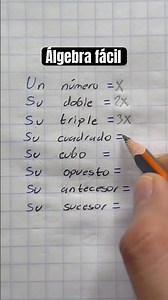 Álgebra fácil
Un número = X
Su doble = 2X
Su triple = 3X
Su cuadrado =
Su cubo =
Su opuesto =
Su antecesor =
Su sucesor =